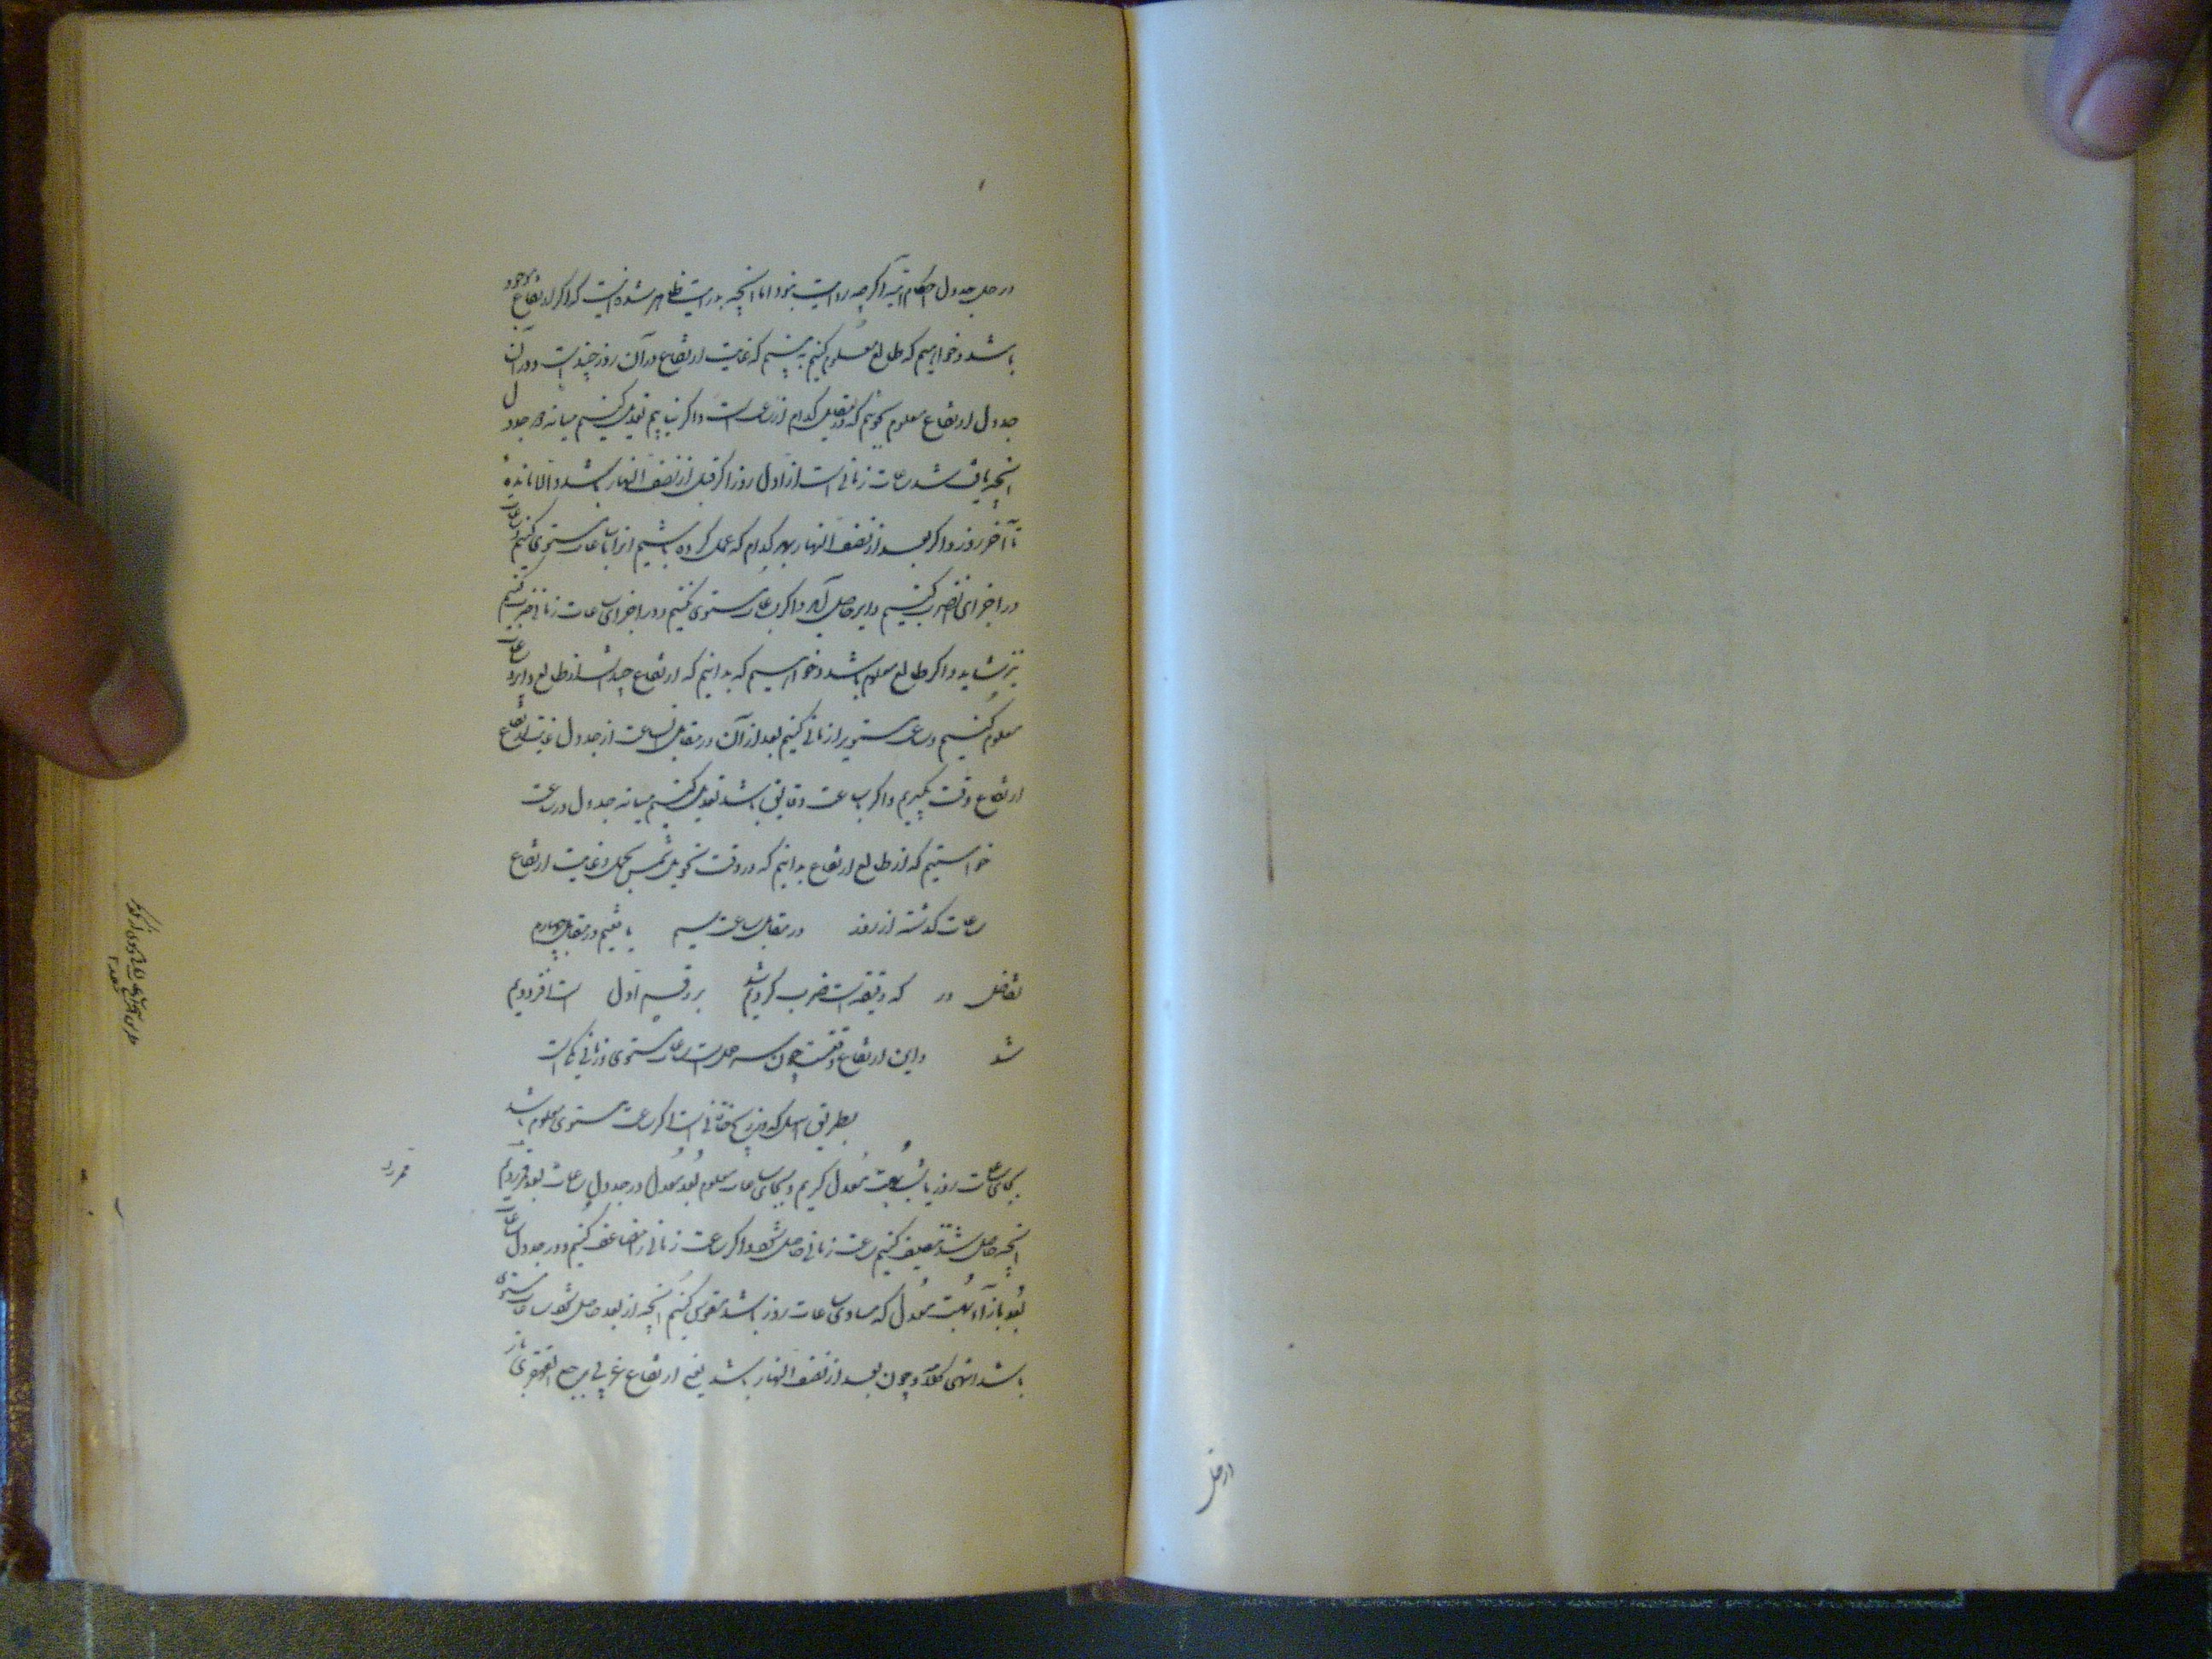 در حل جدول احکام اگرچه روایت بود اما آنچه بدرایت ظاهر شده اینست که اگر ارتفاع موجود
باشد و خواهیم که طالع معلوم کنیم به بینیم که غایت ارتفاع در آن روز چند است و در آن
جدول ارتفاع معلوم بجوئیم که در مقابل کدام از ساعات است و اگر نیابیم تعدیل کنیم میانه دو جدول
آنچه یافته شد ساعات زمانی است از اول روز اگر قبل از نصف النهار باشد و الا مانده
تا آخر روز و اگر بعد از نصف النهار بهر کدام که عمل کرده باشیم انرا بساعات مستوی کنیم
در اجزای ضرب کنیم دایر حاصل آید و اگر ساعات مستوی نکنیم و در اجزای ساعات زمانی ضرب کنیم
نیز شاید و اگر طالع معلوم باشد و خواهیم که بدانیم که ارتفاع چند است از طالع دایر و ساعات
معلوم کنیم و ساعات مستویرا زمانی کنیم بعد از آن در مقابل ساعت از جدول غایت ارتفاع
ارتفاع وقت بگیریم و اگر با ساعت دقایق باشد تعدیل کنیم میانه جدول دو ساعت
خواستیم که از طالع ارتفاع بدانیم که در وقت تحویل شمس بحمل و غایت ارتفاع
ساعات گذشته از روز در مقابل ساعت سیم یافتیم در مقابل چهارم
تفاضل در که دقیقه است ضرب کردیم شد بر رقم اول است افزودیم
شد و این ارتفاع وقتست چون سر حمل است ساعات مستوی و زمانی یکی است
بطریق اسهل که در زیج خاقانی است اگر ساعت مستوی معلوم باشد
بجای ساعات روز یا شب بهت معدل گیریم و بجای ساعات معلوم بعد معدل و در جدول ساعات بعد
آنچه حاصل شد تنصیف کنیم ساعت زمانی حاصل شود و اگر ساعت زمانی را مضاعف کنیم و در جدول ساعات
بعد بازآء بهت معدل که مساوی ساعات روز باشد مقوس کنیم آنچه از بعد حاصل شود ساعات مستوی
باشد انتهی کلامه و چون بعد از نصف النهار باشد یعنی ارتفاع غربی یرجع القهقری
در حل